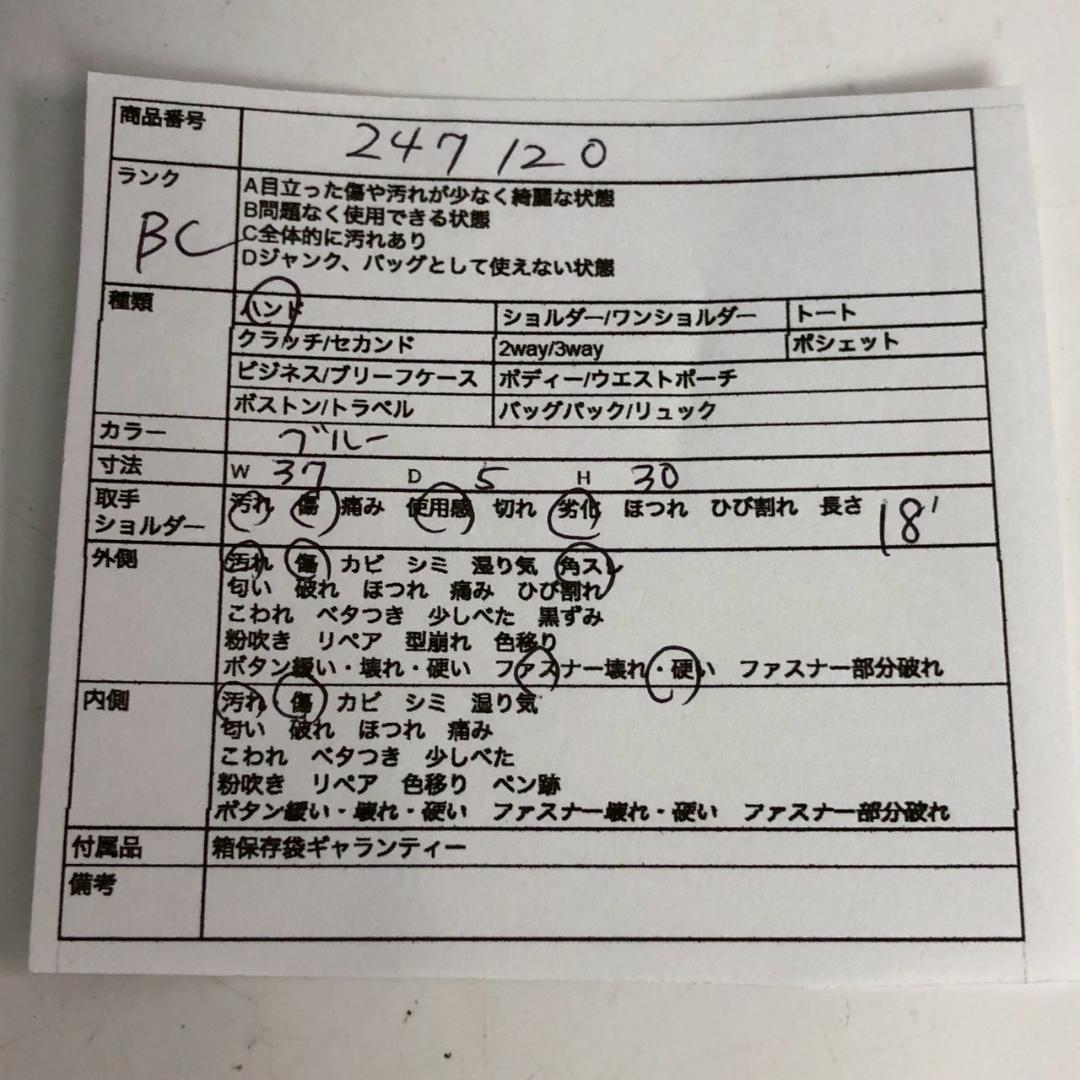 商品番号 247120
ランク BC
A目立った傷や汚れが少なく綺麗な状態
B問題なく使用できる状態
C全体的に汚れあり
Dジャンク、バッグとして使えない状態
種類 ハンド ショルダー/ワンショルダー トート
クラッチ/セカンド 2way/3way ポシェット
ビジネス/ブリーフケース ボディー/ウエストポーチ
ボストン/トラベル バッグパック/リュック
カラー ブルー
寸法 W 37 D 5 H 30
取手 汚れ 傷 痛み 使用感 切れ 劣化 ほつれ ひび割れ 長さ 18
ショルダー
外側 汚れ 傷 カビ シミ 湿り気 角スレ
匂い 破れ ほつれ 痛み ひび割れ
こわれ ベタつき 少しべた 黒ずみ
粉吹き リペア 型崩れ 色移り
ボタン緩い・壊れ・硬い ファスナー壊れ・硬い ファスナー部分破れ
内側 汚れ 傷 カビ シミ 湿り気
匂い 破れ ほつれ 痛み
こわれ ベタつき 少しべた
粉吹き リペア 色移り ペン跡
ボタン緩い・壊れ・硬い ファスナー壊れ・硬い ファスナー部分破れ
付属品 箱保存袋ギャランティー
備考